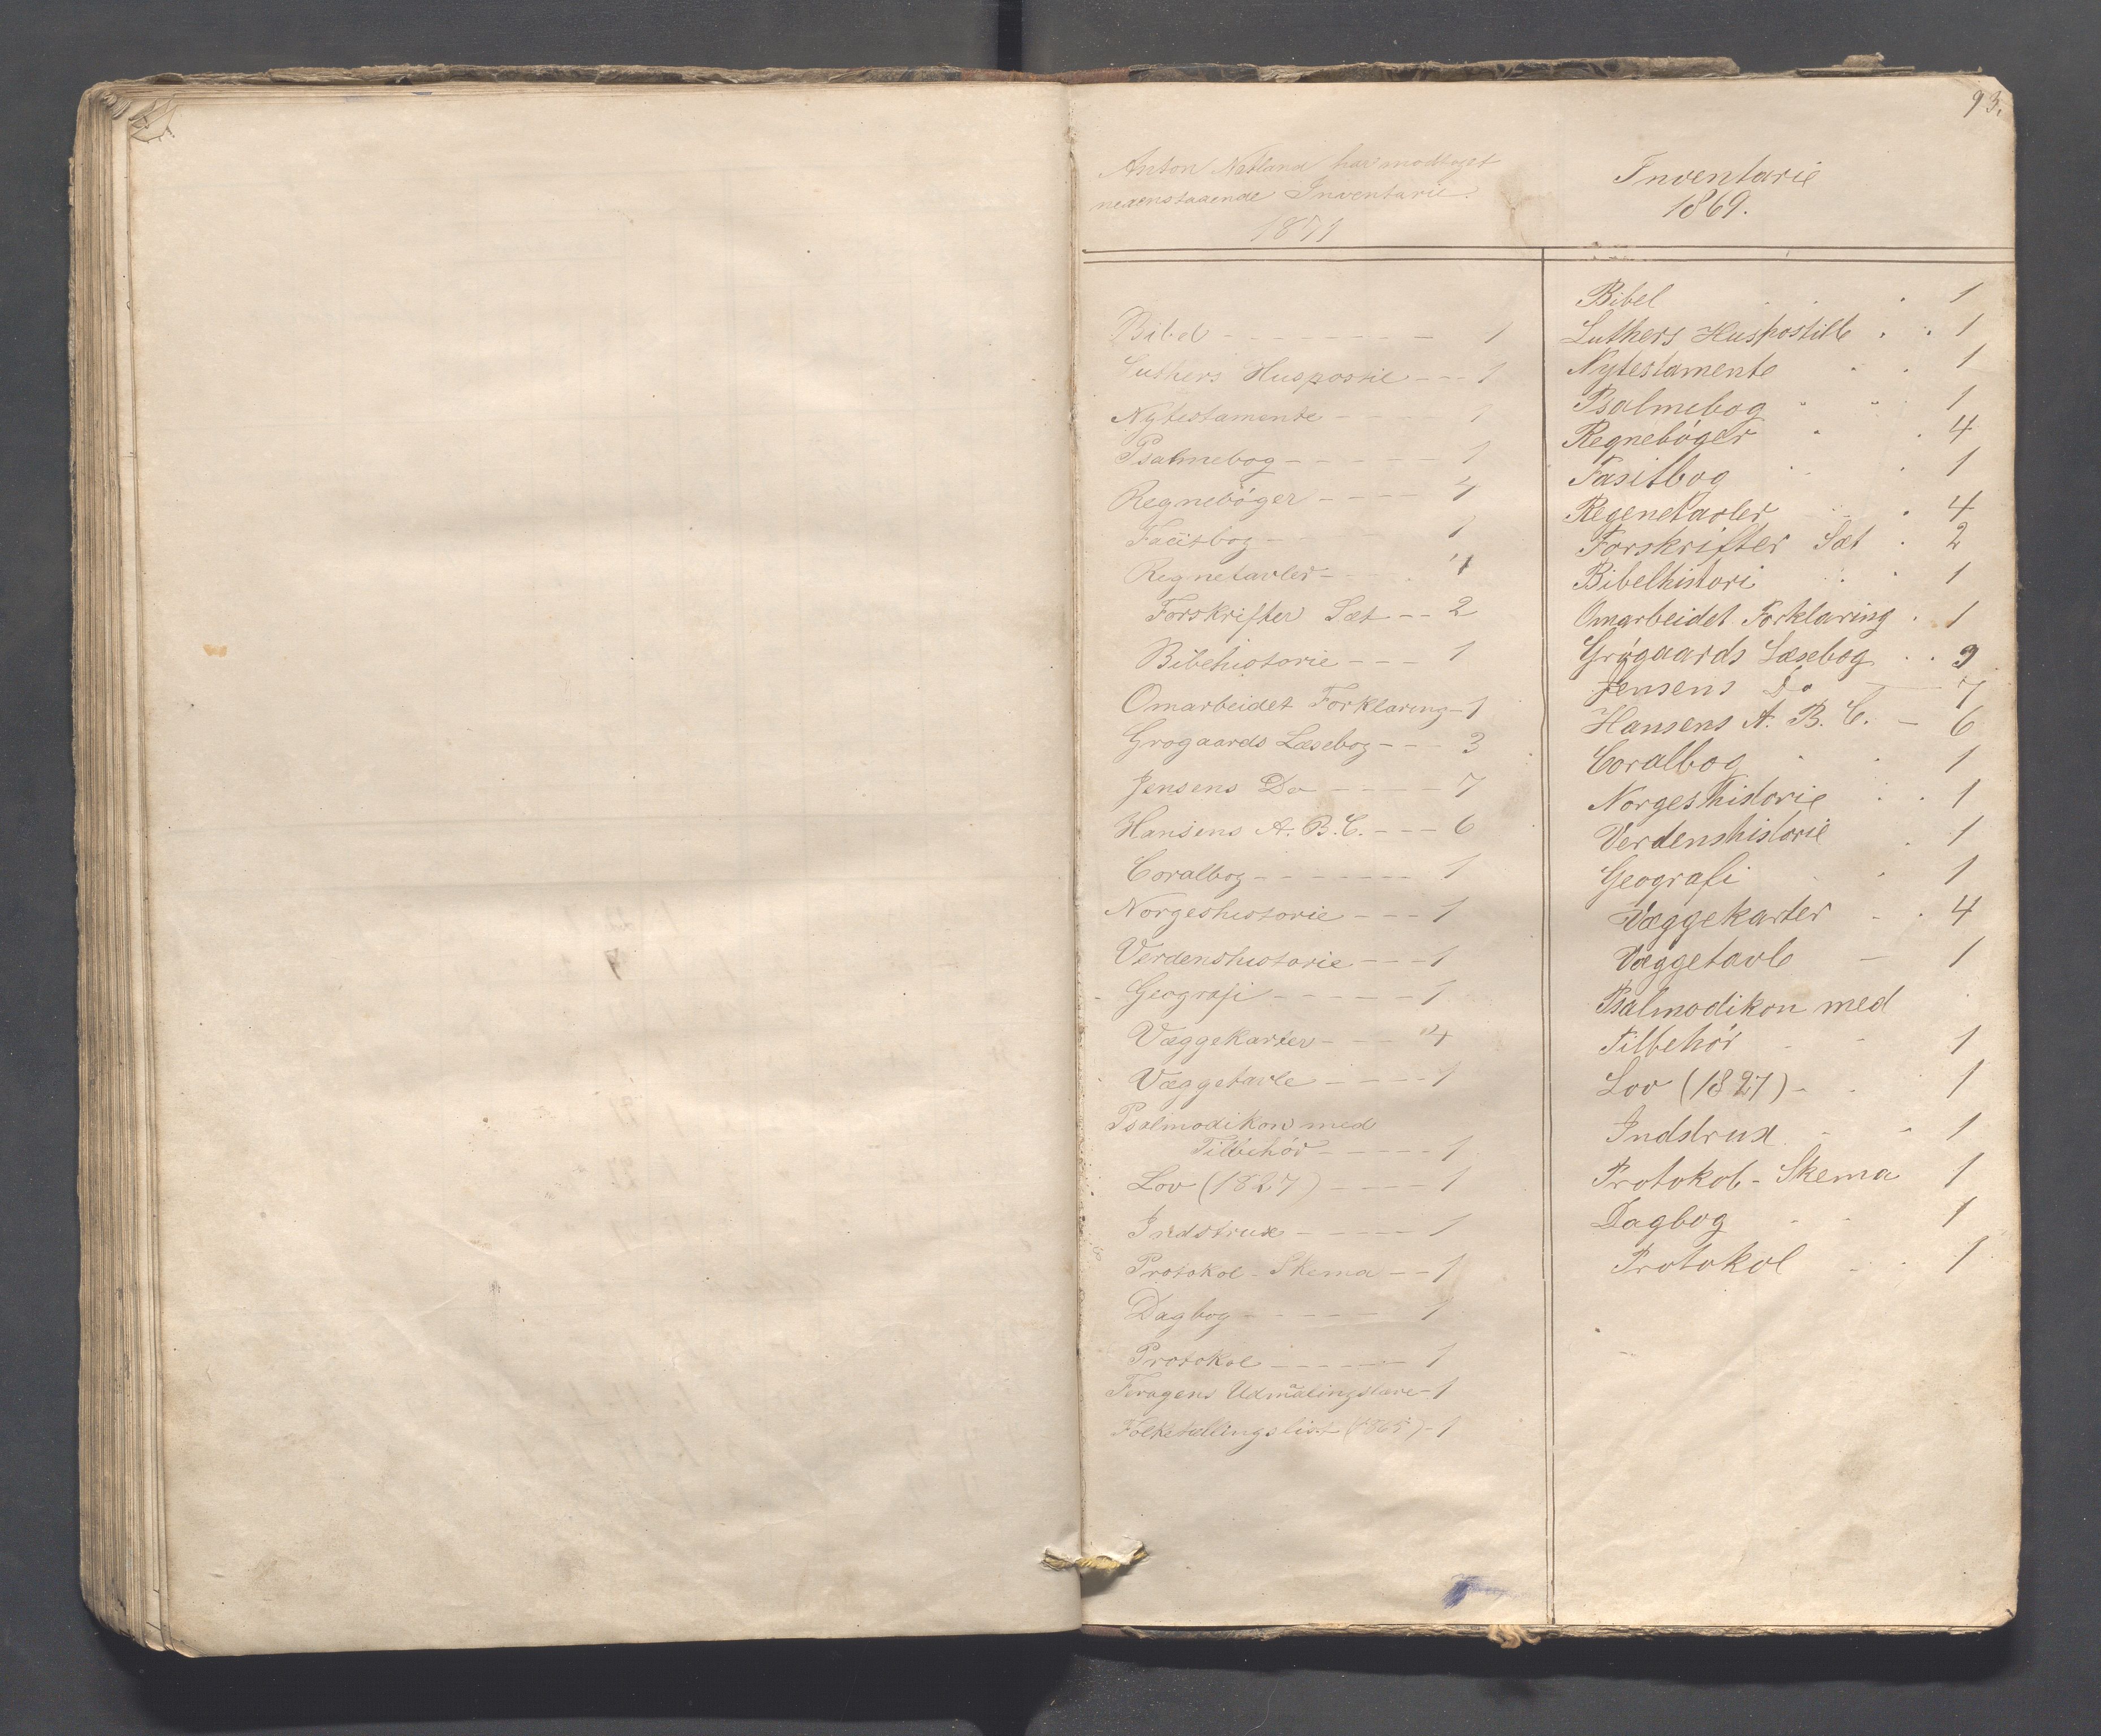 93.
Anton Natland har modtaget
nedenstaaende Inventarie.
1871
Bibel - - - - - - - - 1
Luthers Huspostil - - - 1
Nytestamente - - - - 1
Psalmebog - - - - - 1
Regnebøger - - - - 4
Facitbog - - - - 1
Regnetavler - - - 4
Forskrifter Sæt - - 2
Bibelhistorie - - - 1
Omarbeidet Forklaring - 1
Grøgaards Læsebog - - - 3
Jensens Do - - - - 7
Hansens A. B. C. - - - 6
Coralbog - - - - - - - 1
Norgeshistorie - - - 1
Verdenshistorie - - - 1
Geografi - - - - - 1
Væggekarter - - - 4
Væggetavle - - - - 1
Psalmodikon med
Tilbehør - - - - - 1
Lov (1827) - - - - 1
Indstrux - - - - - 1
Protokol - Skema - - 1
Dagbog - - - - - - 1
Protokol - - - - - - 1
Udmålingslære - 1
Folketællingslist (1865) - 1
Inventarie
1869.
Bibel . . . 1
Luthers Huspostille . . 1
Nytestamente . . 1
Psalmebog . . 1
Regnebøger . . 4
Fasitbog . . 1
Regenetavler . . 4
Forskrifter Sæt . 2
Bibelhistori . . 1
Omarbeidet Forklaring . 1
Grøgaards Læsebog . . 3
Jensens Do — 7
Hansens A. B. C. — 6
Coralbog . . 1
Norgeshistorie . . 1
Verdenshistorie . 1
Geografi . . 1
Væggekarter - . 4
Væggetavle — 1
Psalmodikon med
Tilbehör - - 1
Lov (1827) - - 1
Indstrux - - 1
Protokol - Skema 1
Dagbog - - 1
Protokol - . 1